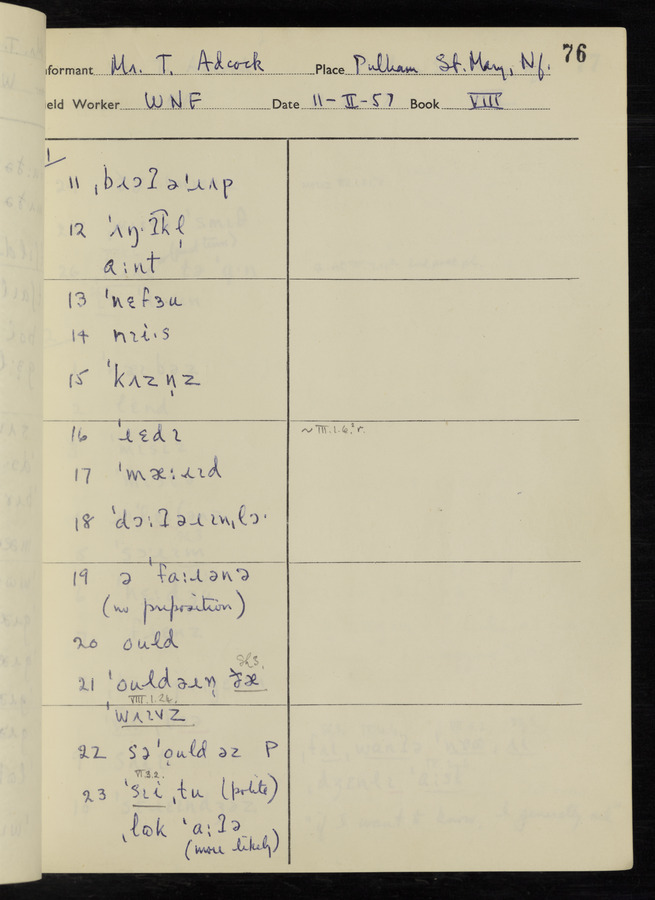 76
Informant Mr. T. Adcock Place Pulham St. Mary, Nf.
Field Worker WNF Date 11-II-57 Book VIII
11 ˌbɹɔʔ əˈɹʌp
12 ˈʌŋ·ʔkl̩
a:nt
13 ˈnɛfɜu
14 nɪi·s
15 ˈkʌzn̩z
16 ˈɹɛdɪ
17 ~ III.1.6.
17 ˈmæ:ɹɪd
18 ˈdɔ:ʔəɹɪnˌlɔ·
19 ə ˈfa:ɹənə
(no preposition)
20 ould
21 ˈould
VIII.1.24.
ˈwɪɪvz
22 səˈould əz P
VI.3.2.
23 ˈsɪi ˌtu (polite)
ˌlʊk ˈa:ʔə
(more likely)